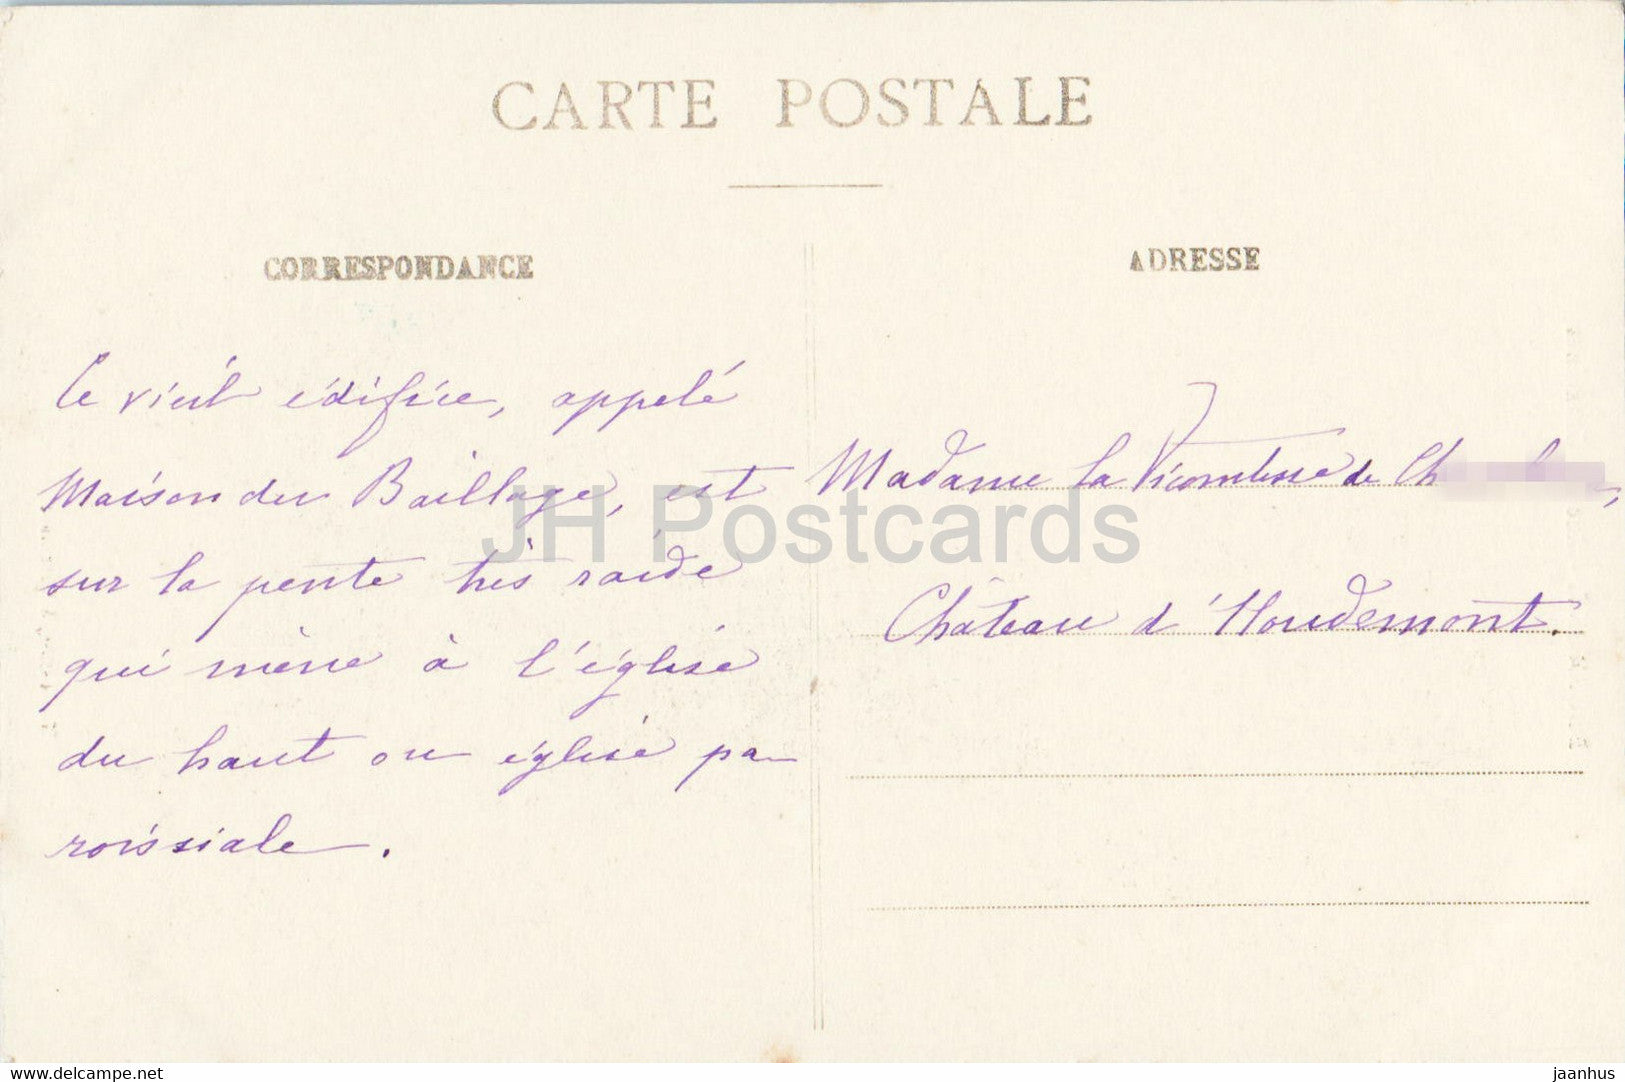 CARTE POSTALE
CORRESPONDANCE
ADRESSE
Ce vieil édifice, appelé
Maison du Baillage, est
sur la pente très raide
qui mène à l'église
du haut ou église pa-
roissiale.
Madame la Vicomtesse de Ch
Château d'Houdemont.
JH Postcards
www.delcampe.net
jaanhus